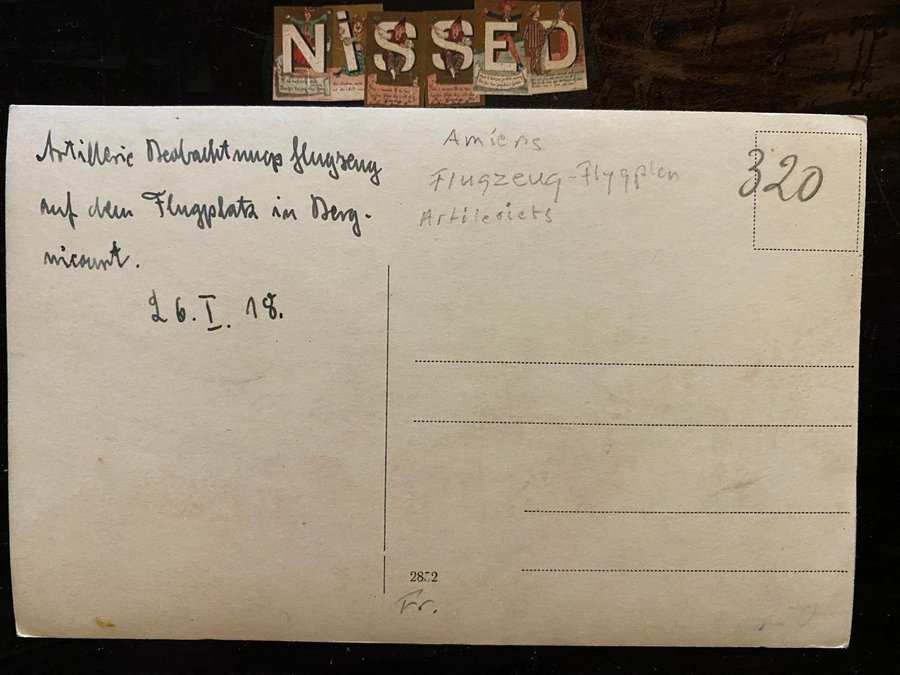 NiSSED
Artillerie Beobachtungsflugzeug
auf dem Flugplatz in Berg-
nicourt.
26. I. 18.
Amiens
Flugzeug-Flygplan
320
2852
Fr.